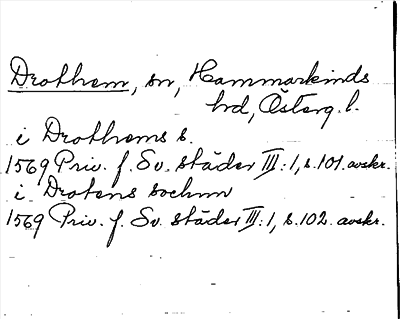 Drothem, sn, Hammarkinds
hd, Österg. l.
i Drothems s.
1569 Priv. f. Sv. städer III:1, s. 101. avskr.
i Drotens sochnn
1569 Priv. f. Sv. städer III:1, s. 102. avskr.